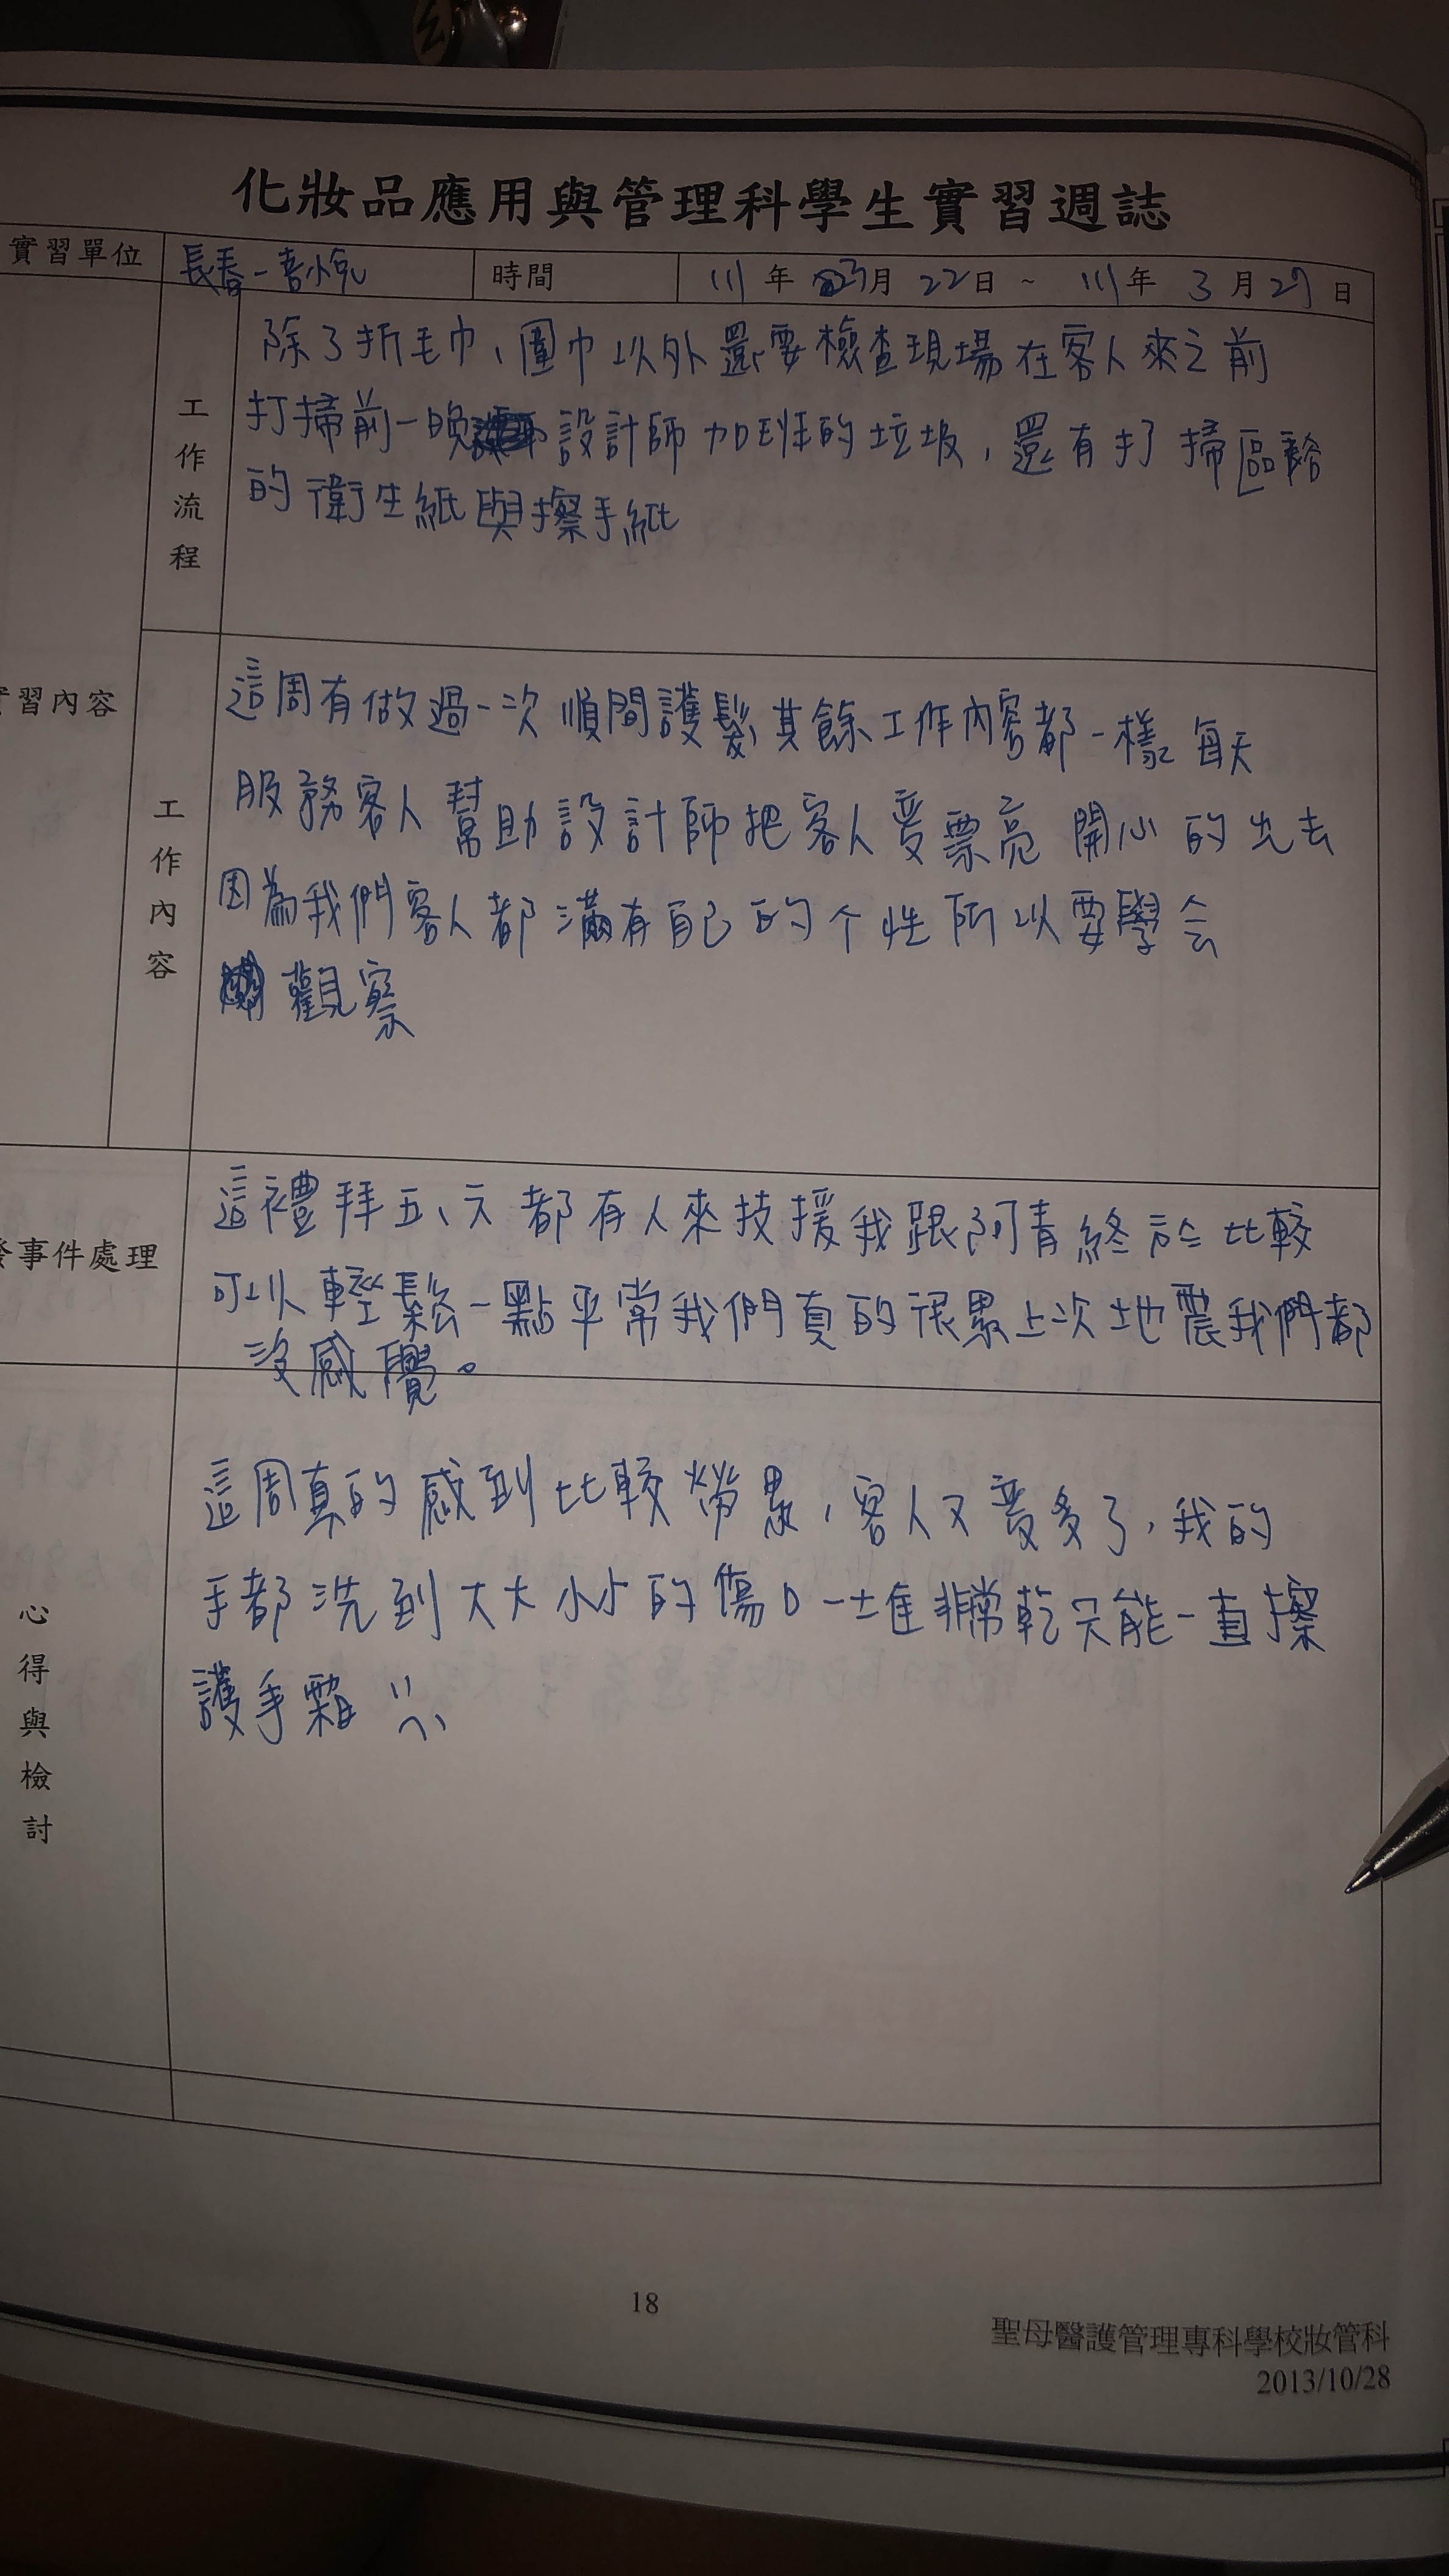 化妝品應用與管理科學生實習週誌
實習單位 長春一 時間 111年 03月 22日 ~ 111年 3月27日
工作流程
除了折毛巾、圍巾以外還要檢查現場在客人來之前
打掃前一晚設計師加班的垃圾,還有打掃區
的衛生紙與擦手紙
習內容
工作內容
這周有做過一次順間護髮,其餘工作內容都一樣每天
服務客人幫助設計師把客人變票亮開心的出去
因為我們客人都滿有自己的个性所以要學会
觀察
事件處理
這禮拜五、六都有人來技援我跟阿青終於比較
可以輕鬆一點平常我們真的很累上次地震我們都
沒感覺。
心得與檢討
這周真的感到比較勞累,客人又變多了,我的
手都洗到大大小小的傷口一堆非常乾只能一直擦
護手霜
18
聖母醫護管理專科學校妝管科
2013/10/28